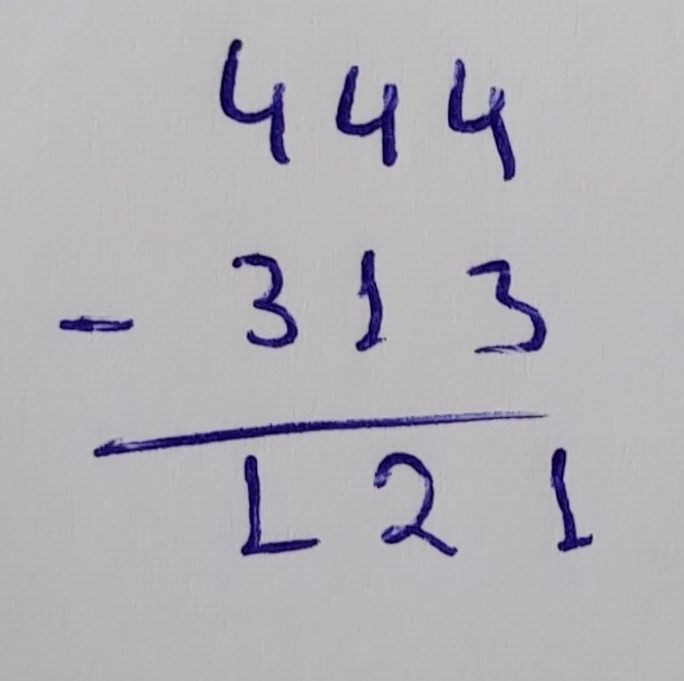 444
- 313
121